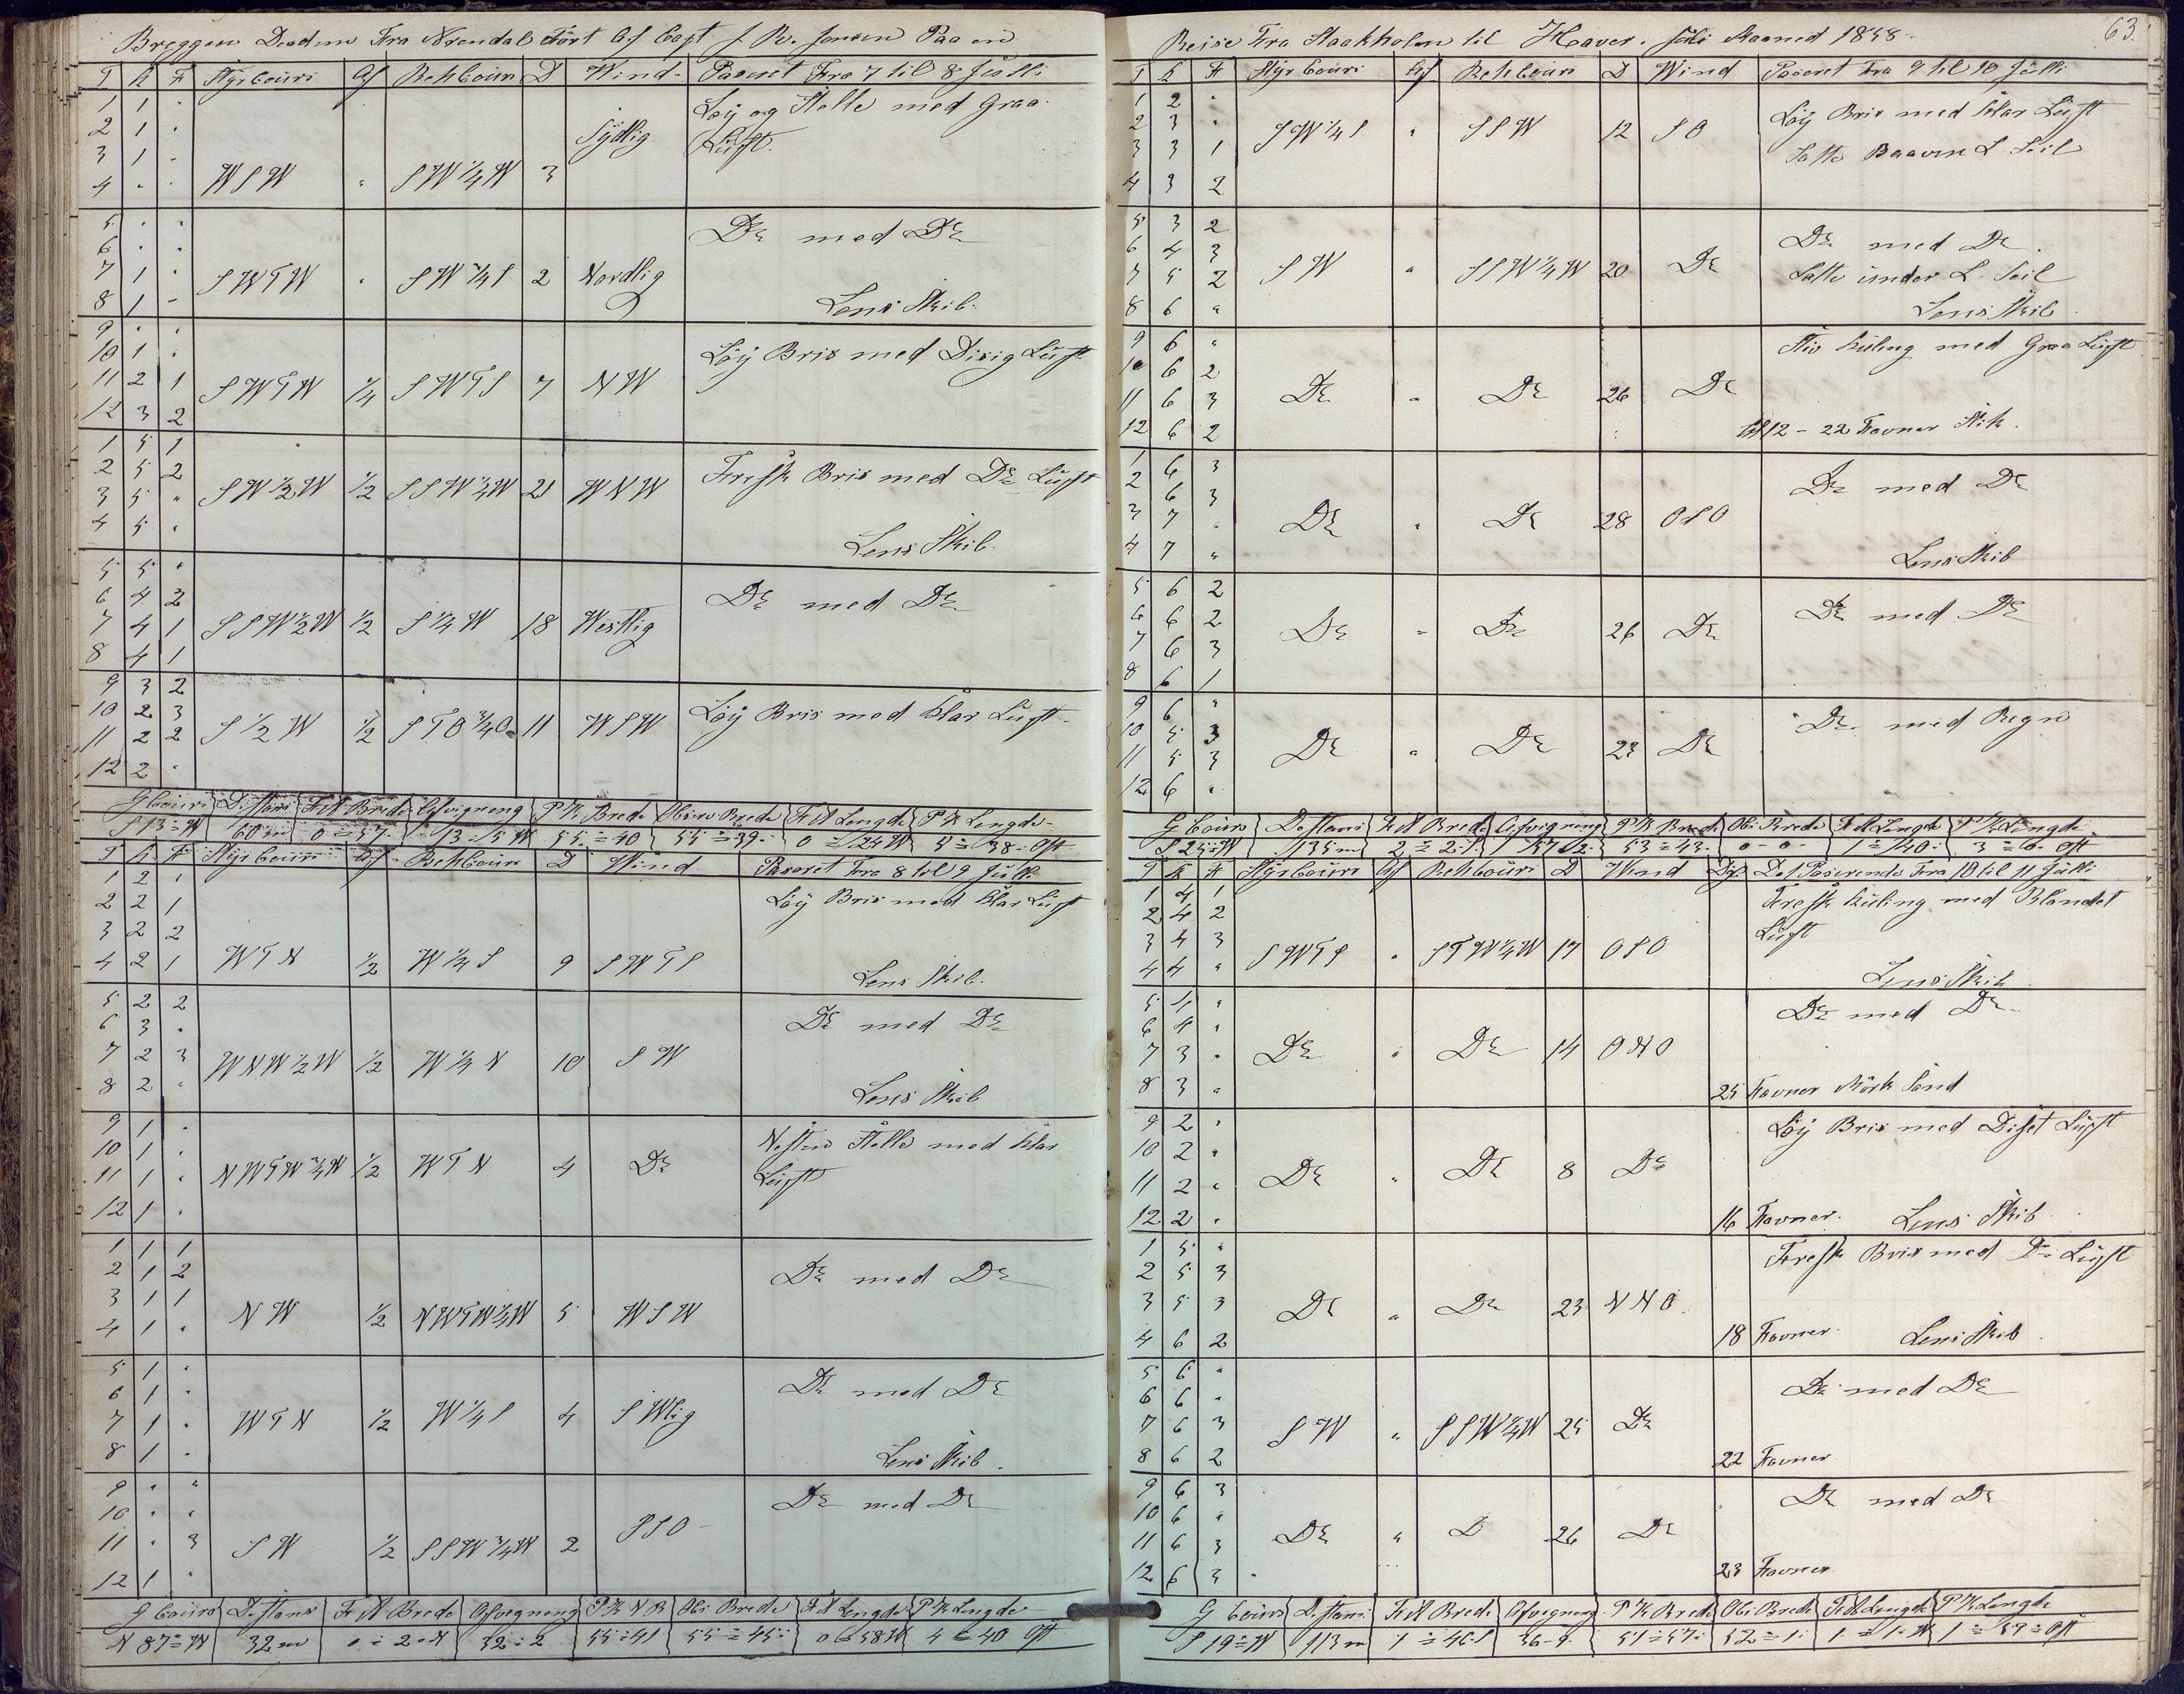 Breggen Deodum Fra Arendal Ført Af Capt J. R. Jensen Paa en
T K F Styrcours Af Behcours D Wind Paseret Fra 7 til 8 Julli
1 1 " Løy og Stelle med Graa
2 1 " Sydlig Luft.
3 1 "
4 " " WSW " SW 1/4 W 3
5 " " Do med Do
6 " "
7 1 " SWTW " SW 3/4 S 2 Nordlig
8 1 " Lens Skib.
9 " "
10 1 " Løy Bris med Disig Luft
11 2 1 SWTW 1/4 SWTS 7 NW
12 3 2
1 5 1
2 5 2 Fresk Bris med Do Luft
3 5 " SW 1/2 W 1/2 SSW 3/4 W 21 WNW
4 5 " Lens Skib.
5 5 "
6 4 2 Do med Do
7 4 1 SSW 1/2 W 1/2 S 1/4 W 18 Westlig
8 4 1
9 3 2
10 2 3 Løy Bris med klar Luft
11 2 2 S 1/2 W 1/2 STO 3/4 O 11 WSW
12 2 "
G Cours Destans F A Brede Afvigneng P K Brede Obs Brede F A Lengde P K Lengde
S 13 W 60 m 0 57 13 5 W 55 40 55 39 0 24 W 5 38 Ost
T K F Styrcours Af Behcours D Wind Paseret Fra 8 til 9 Julli
1 2 " Løy Bris med klar Luft
2 2 1
3 2 2
4 2 1 WTN 1/2 W 1/4 S 9 SWTS Lens Skib.
5 2 2 Do med Do
6 3 "
7 2 3 WNW 1/2 W 1/2 W 1/4 N 10 SW
8 2 " Lens Skib
9 1 " Nesten Stelle med klar
10 1 " Luft
11 1 " NWTW 3/4 W 1/2 WTN 4 Do
12 1 "
1 1 1
2 1 2 Do med Do
3 1 1 NW 1/2 NWTW 1/4 W 5 WSW
4 1 "
5 1 " Do med Do
6 1 "
7 1 " WTN 1/2 W 1/4 S 4 SWlig
8 1 " Lens Skib.
9 " " Do med Do
10 " "
11 " 3 SW 1/2 SSW 3/4 W 2 SSO
12 1 "
G Cours Destans F A Brede Afvigneng P K N B Obs Brede F A Lengde P K Lengde
N 87 W 32 m 0 2 N 32 2 55 41 55 45 0 58 W 4 40 Ost
63.
Reise Fra Staakholm til Havre. Juli Maaned 1858
T K F Styrcours Af Behcours D Wind Paseret Fra 9 til 10 Julli
1 2 " Løy Bris med klar Luft
2 3 " SW 1/4 S " SSW 12 SO
3 3 1 Satte Baaven L. Seil
4 3 2
5 3 2 Do med Do
6 4 3 SW " SSW 1/4 W 20 Do
7 5 2 Satte under L. Seil
8 6 " Lens Skib
9 6 " Stiv Kuling med Graa Luft
10 6 2
11 6 3 Do " Do 26 Do
12 6 2 Kl 12 - 22 Favner Stik.
1 6 3
2 6 3 Do med Do
3 7 " Do " Do 28 OSO
4 7 " Lens Skib
5 6 2
6 6 2 Do " Do 26 Do Do med Do
7 6 3
8 6 1
9 6 " Do med Regn
10 5 3
11 5 3 Do " Do 23 Do
12 6 "
G Cours Destans F A Brede Afvigneng P K Brede Obs Brede F A Lengde P K Lengde
S 25 W 135 m 2 2 S 57 2 53 43 0 0 1 40 3 0 Ost
T K F Styrcours Af Behcours D Wind Dyb Det Paserende Fra 10 til 11 Julli
1 4 1 Fresk Kuling med Blandet
2 4 2 Luft
3 4 3 SWTS " STW 1/4 W 17 OSO
4 4 " Lens Skib
5 4 " Do med Do
6 4 "
7 3 " Do " Do 14 ONO
8 3 " 25 Favner Mørk Sand
9 2 " Løy Bris med Diset Luft
10 2 "
11 2 " Do " Do 8 Do
12 2 " 16 Favner. Lens Skib
1 5 " Fresk Bris med Do Luft
2 5 3
3 5 3 Do " Do 23 NNO
4 6 2 18 Favner. Lens Skib
5 6 " Do med Do
6 6 "
7 6 3 SW " SSW 1/4 W 25 Do
8 6 2 22 Favner
9 6 3 Do med Do
10 6 "
11 6 3 Do " D 26 Do
12 6 3 23 Favner
G Cours Destans F A Brede Afvigneng P K Brede Obs Brede F A Lengde P K Lengde
S 19 W 113 m 1 46 S 36 9 51 57 52 1 1 1 W 1 59 Ost